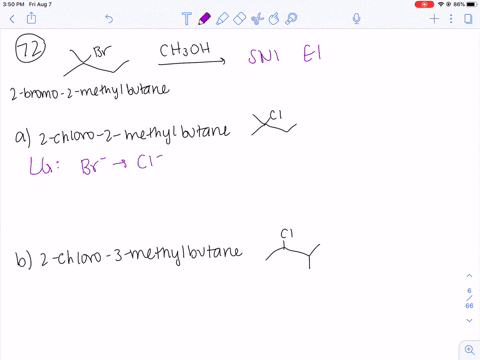 3:50 PM Fri Aug 7
86%
72
Br
CH3OH
SN1 E1
2-bromo-2-methylbutane
a) 2-chloro-2-methylbutane
Cl
LG: Br⁻ → Cl⁻
b) 2-chloro-3-methylbutane
Cl
6
/
66